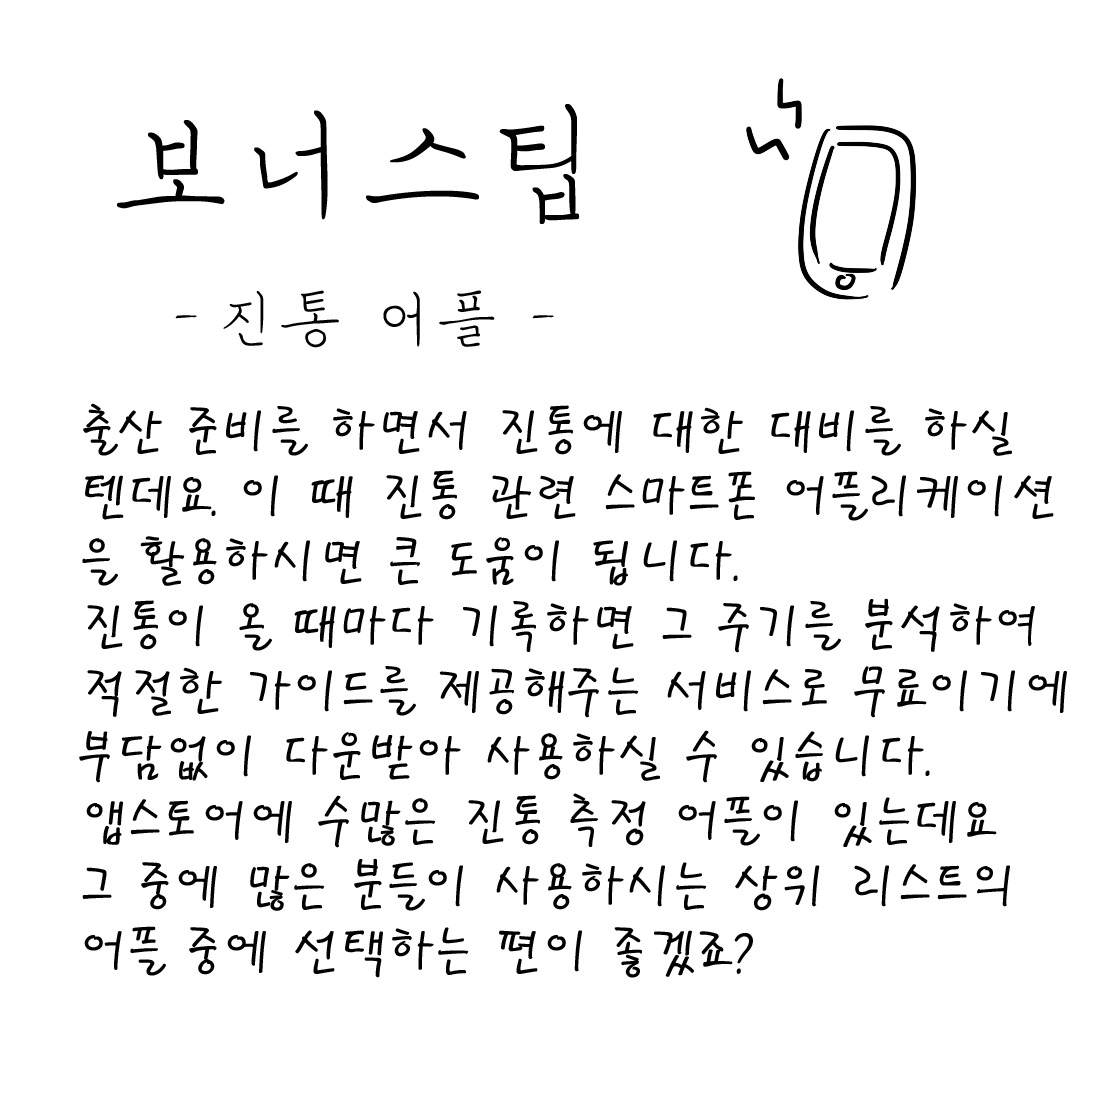 보너스팁
- 진통 어플 -
출산 준비를 하면서 진통에 대한 대비를 하실
텐데요. 이 때 진통 관련 스마트폰 어플리케이션
을 활용하시면 큰 도움이 됩니다.
진통이 올 때마다 기록하면 그 주기를 분석하여
적절한 가이드를 제공해주는 서비스로 무료이기에
부담없이 다운받아 사용하실 수 있습니다.
앱스토어에 수많은 진통 측정 어플이 있는데요
그 중에 많은 분들이 사용하시는 상위 리스트의
어플 중에 선택하는 편이 좋겠죠?